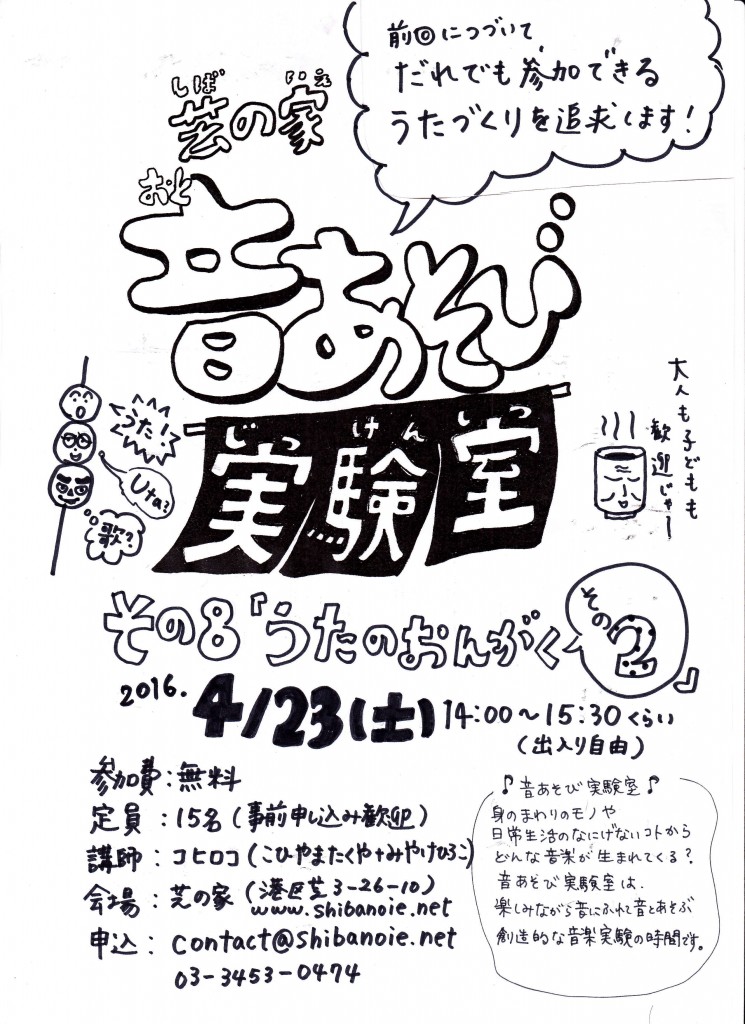 前回につづいて
だれでも参加できる
うたづくりを追求します!
しば いえ
芝の家
おと
音あそび
じっ けん しつ
実験室
うた!
Uta?
歌?
大人も子どもも
歓迎じゃー
その8『うたのおんがく その2』
2016. 4/23(土) 14:00〜15:30くらい
(出入り自由)
参加費:無料
定員:15名(事前申し込み歓迎)
講師:コヒロコ(こひやまたくや+みやけひろこ)
会場:芝の家(港区芝3-26-10)
www.shibanoie.net
申込:contact@shibanoie.net
03-3453-0474
♪音あそび実験室♪
身のまわりのモノや
日常生活のなにげないコトから
どんな音楽が生まれてくる?
音あそび実験室は、
楽しみながら音にふれて音とあそぶ
創造的な音楽実験の時間です。